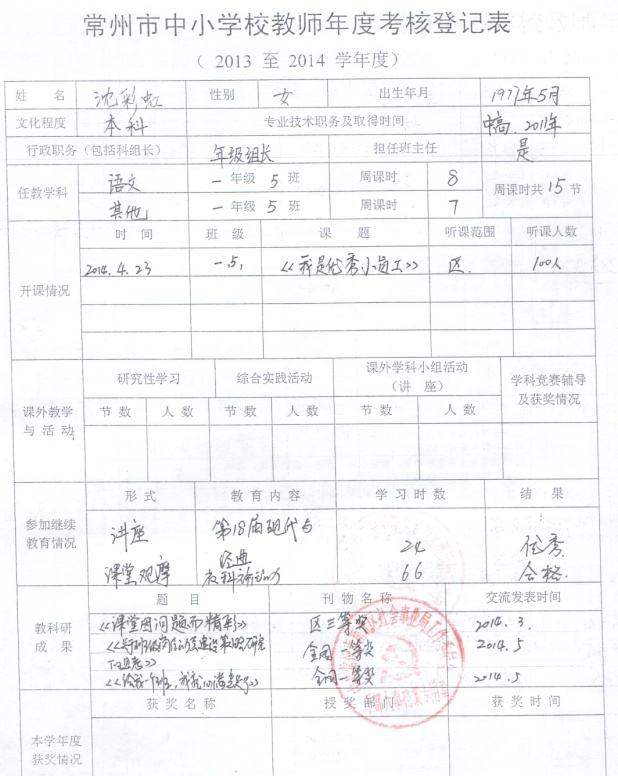 常州市中小学校教师年度考核登记表
（ 2013 至 2014 学年度）
姓 名 沈彩虹 性别 女 出生年月 1977年5月
文化程度 本科 专业技术职务及取得时间 中高.2011年
行政职务（包括科组长） 年级组长 担任班主任 是
任教学科 语文 一 年级 5 班 周课时 8 周课时共 15 节
其他 一 年级 5 班 周课时 7
开课情况 时 间 班 级 课 题 听课范围 听课人数
2014.4.23 一.5. 《我是优秀小员工》 区. 100人
课外教学与 活 动 研究性学习 综合实践活动 课外学科小组活动（讲 座） 学科竞赛辅导及获奖情况
节 数 人 数 节 数 人 数 节 数 人 数
参加继续教育情况 形 式 教 育 内 容 学 习 时 数 结 果
讲座 第18届现代与经典 24 优秀
课堂观摩 66 合格.
教科研成 果 题 目 刊 物 名 称 交流发表时间
《课堂因问题而精彩》 区三等奖 2014.3.
全国一等奖 2014.5
全国一等奖 2014.5
本学年度获奖情况 获 奖 名 称 授 奖 部 门 获 奖 时 间